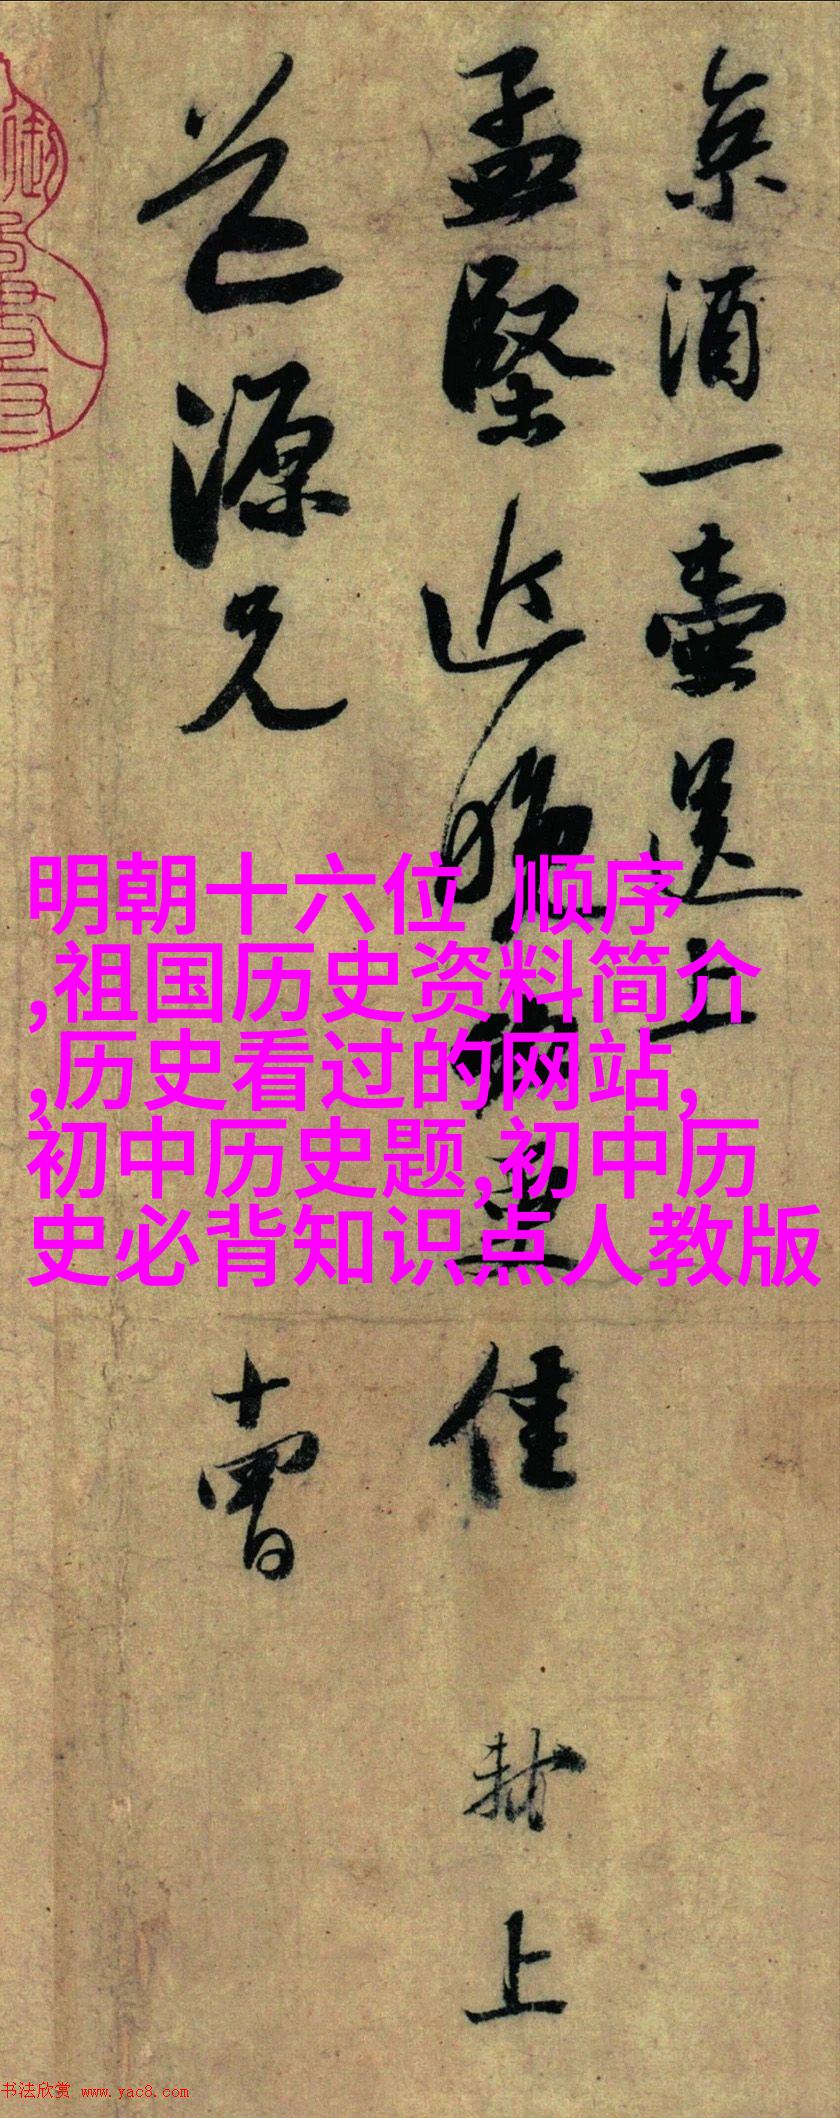 京酒一壶送上
孟坚近晚必更佳
封上
道源兄
十曾
明朝十六位 顺序
,祖国历史资料简介
,历史看过的网站,
初中历史题,初中历
史必背知识点人教版
书法欣赏 www.yac8.com